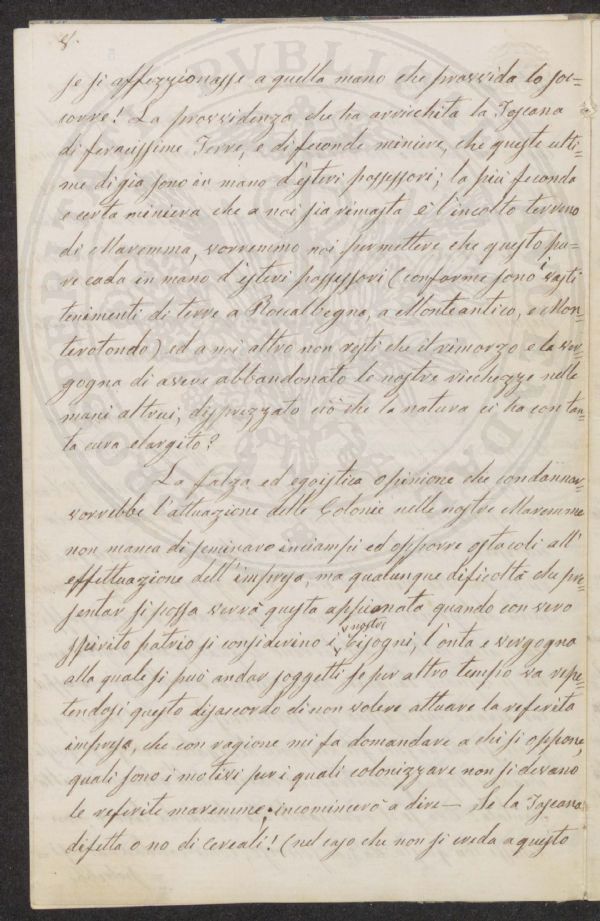 8.
se si affezzionasse a quella mano che provvida lo soc=
corre! La provvidenza che ha arrichita la Toscana
di feracissime Terre, e di feconde miniere, che queste ulti=
me di già sono in mano d'esteri possessori; la più feconda
e certa miniera che a noi sia rimasta è l'incolto terreno
di Maremma, vorremmo noi permettere che questo pu=
re cada in mano d'esteri possessori (conforme sono i vasti
tenimenti di terre a Roccalbegna, a Monteantico, e Mon=
terotondo) ed a noi altro non resti che il rimorzo e la ver=
gogna di avere abbandonato le nostre ricchezze nelle
mani altrui, disprezzato ciò che la natura ci ha con tan=
ta cura elargito?
La falza ed egoistica opinione che condannar
vorrebbe l'attuazione delle Colonie nelle nostre Maremme
non manca di seminare inciampi ed opporre ostacoli all'
effettuazione dell'impresa, ma qualunque dificoltà che pre=
sentar si possa verrà questa appianata quando con vero
spirito patrio si considerino i nostri bisogni, l'onta e vergogna
alla quale si può andar soggetti se per altro tempo va repe=
tendosi questo disaccordo di non volere attuare la referita
impresa, che con ragione mi fa domandare a chi si oppone,
quali sono i motivi per i quali colonizzare non si devano
le referite maremme; incomincerò a dire — Se la Toscana
difetta o no di Cereali! (nel caso che non si creda a questo